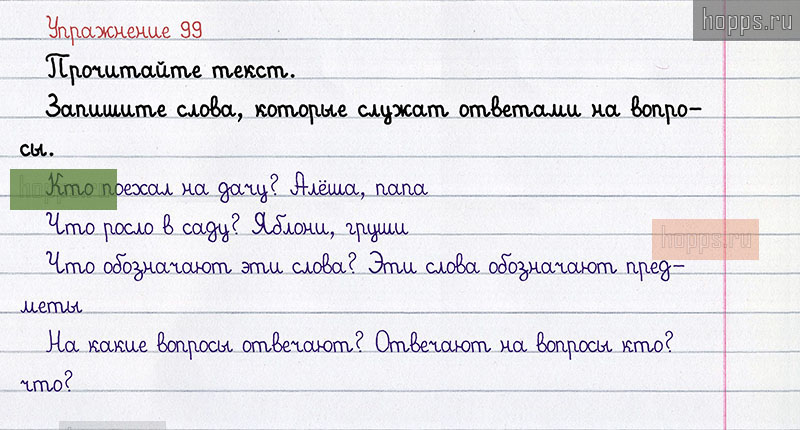 hopps.ru
Упражнение 99
Прочитайте текст.
Запишите слова, которые служат ответами на вопро-
сы.
Кто поехал на дачу? Алёша, папа
Что росло в саду? Яблони, груши
hopps.ru
Что обозначают эти слова? Эти слова обозначают пред-
меты
На какие вопросы отвечают? Отвечают на вопросы кто?
что?